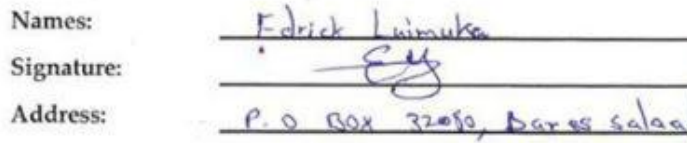 Names: Edrick Luimuka
Signature:
Address: P.O BOX 32080, Dar es salaa